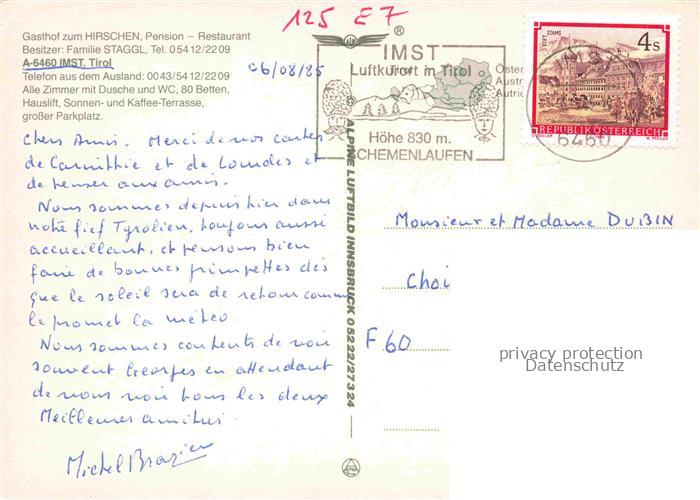 125 E 7
Gasthof zum HIRSCHEN, Pension – Restaurant
Besitzer: Familie STAGGL, Tel. 05412/2209
A-6460 IMST, Tirol
Telefon aus dem Ausland: 0043/5412/2209
Alle Zimmer mit Dusche und WC, 80 Betten,
Hauslift, Sonnen- und Kaffee-Terrasse,
großer Parkplatz.
06/08/85
IMST
Luftkurort in Tirol
Höhe 830 m.
SCHEMENLAUFEN
STIFT STAMS
4 S
REPUBLIK ÖSTERREICH
6460
Chers Amis. Merci de vos cartes
de Carinthie et de Lourdes et
de penser aux amis.
Nous sommes depuis hier dans
notre fief Tyrolien, toujours aussi
accueillant, et pensons bien
faire de bonnes grimpettes dès
que le soleil sera de retour comme
le promet la météo.
Nous sommes contents de voir
souvent Georges en attendant
de vous voir tous les deux
Meilleures amitiés
Michel Brazier
© ALPINE LUFTBILD INNSBRUCK 05222/27324
Monsieur et Madame DUBIN
Choi
F 60
privacy protection
Datenschutz